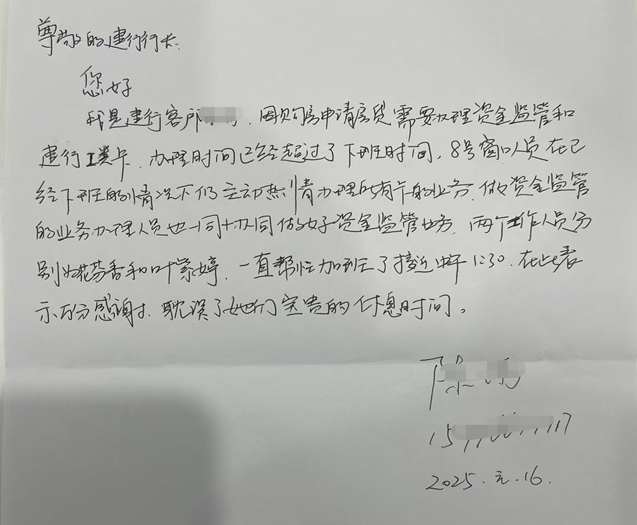 尊敬的建行行长
您好
我是建行客户，因购房申请房贷需要办理资金监管和
建行I类卡，办理时间已经超过了下班时间，8号窗口人员在已
经下班的情况下仍主动热情办理所有卡的业务，做资金监管
的业务办理人员也一同协同做好资金监管业务，两个工作人员分
别是芬香和叶紫婷，一直帮忙加班了接近中午1:30，在此表
示万分感谢！耽误了她们宝贵的休息时间。
2025.元.16.